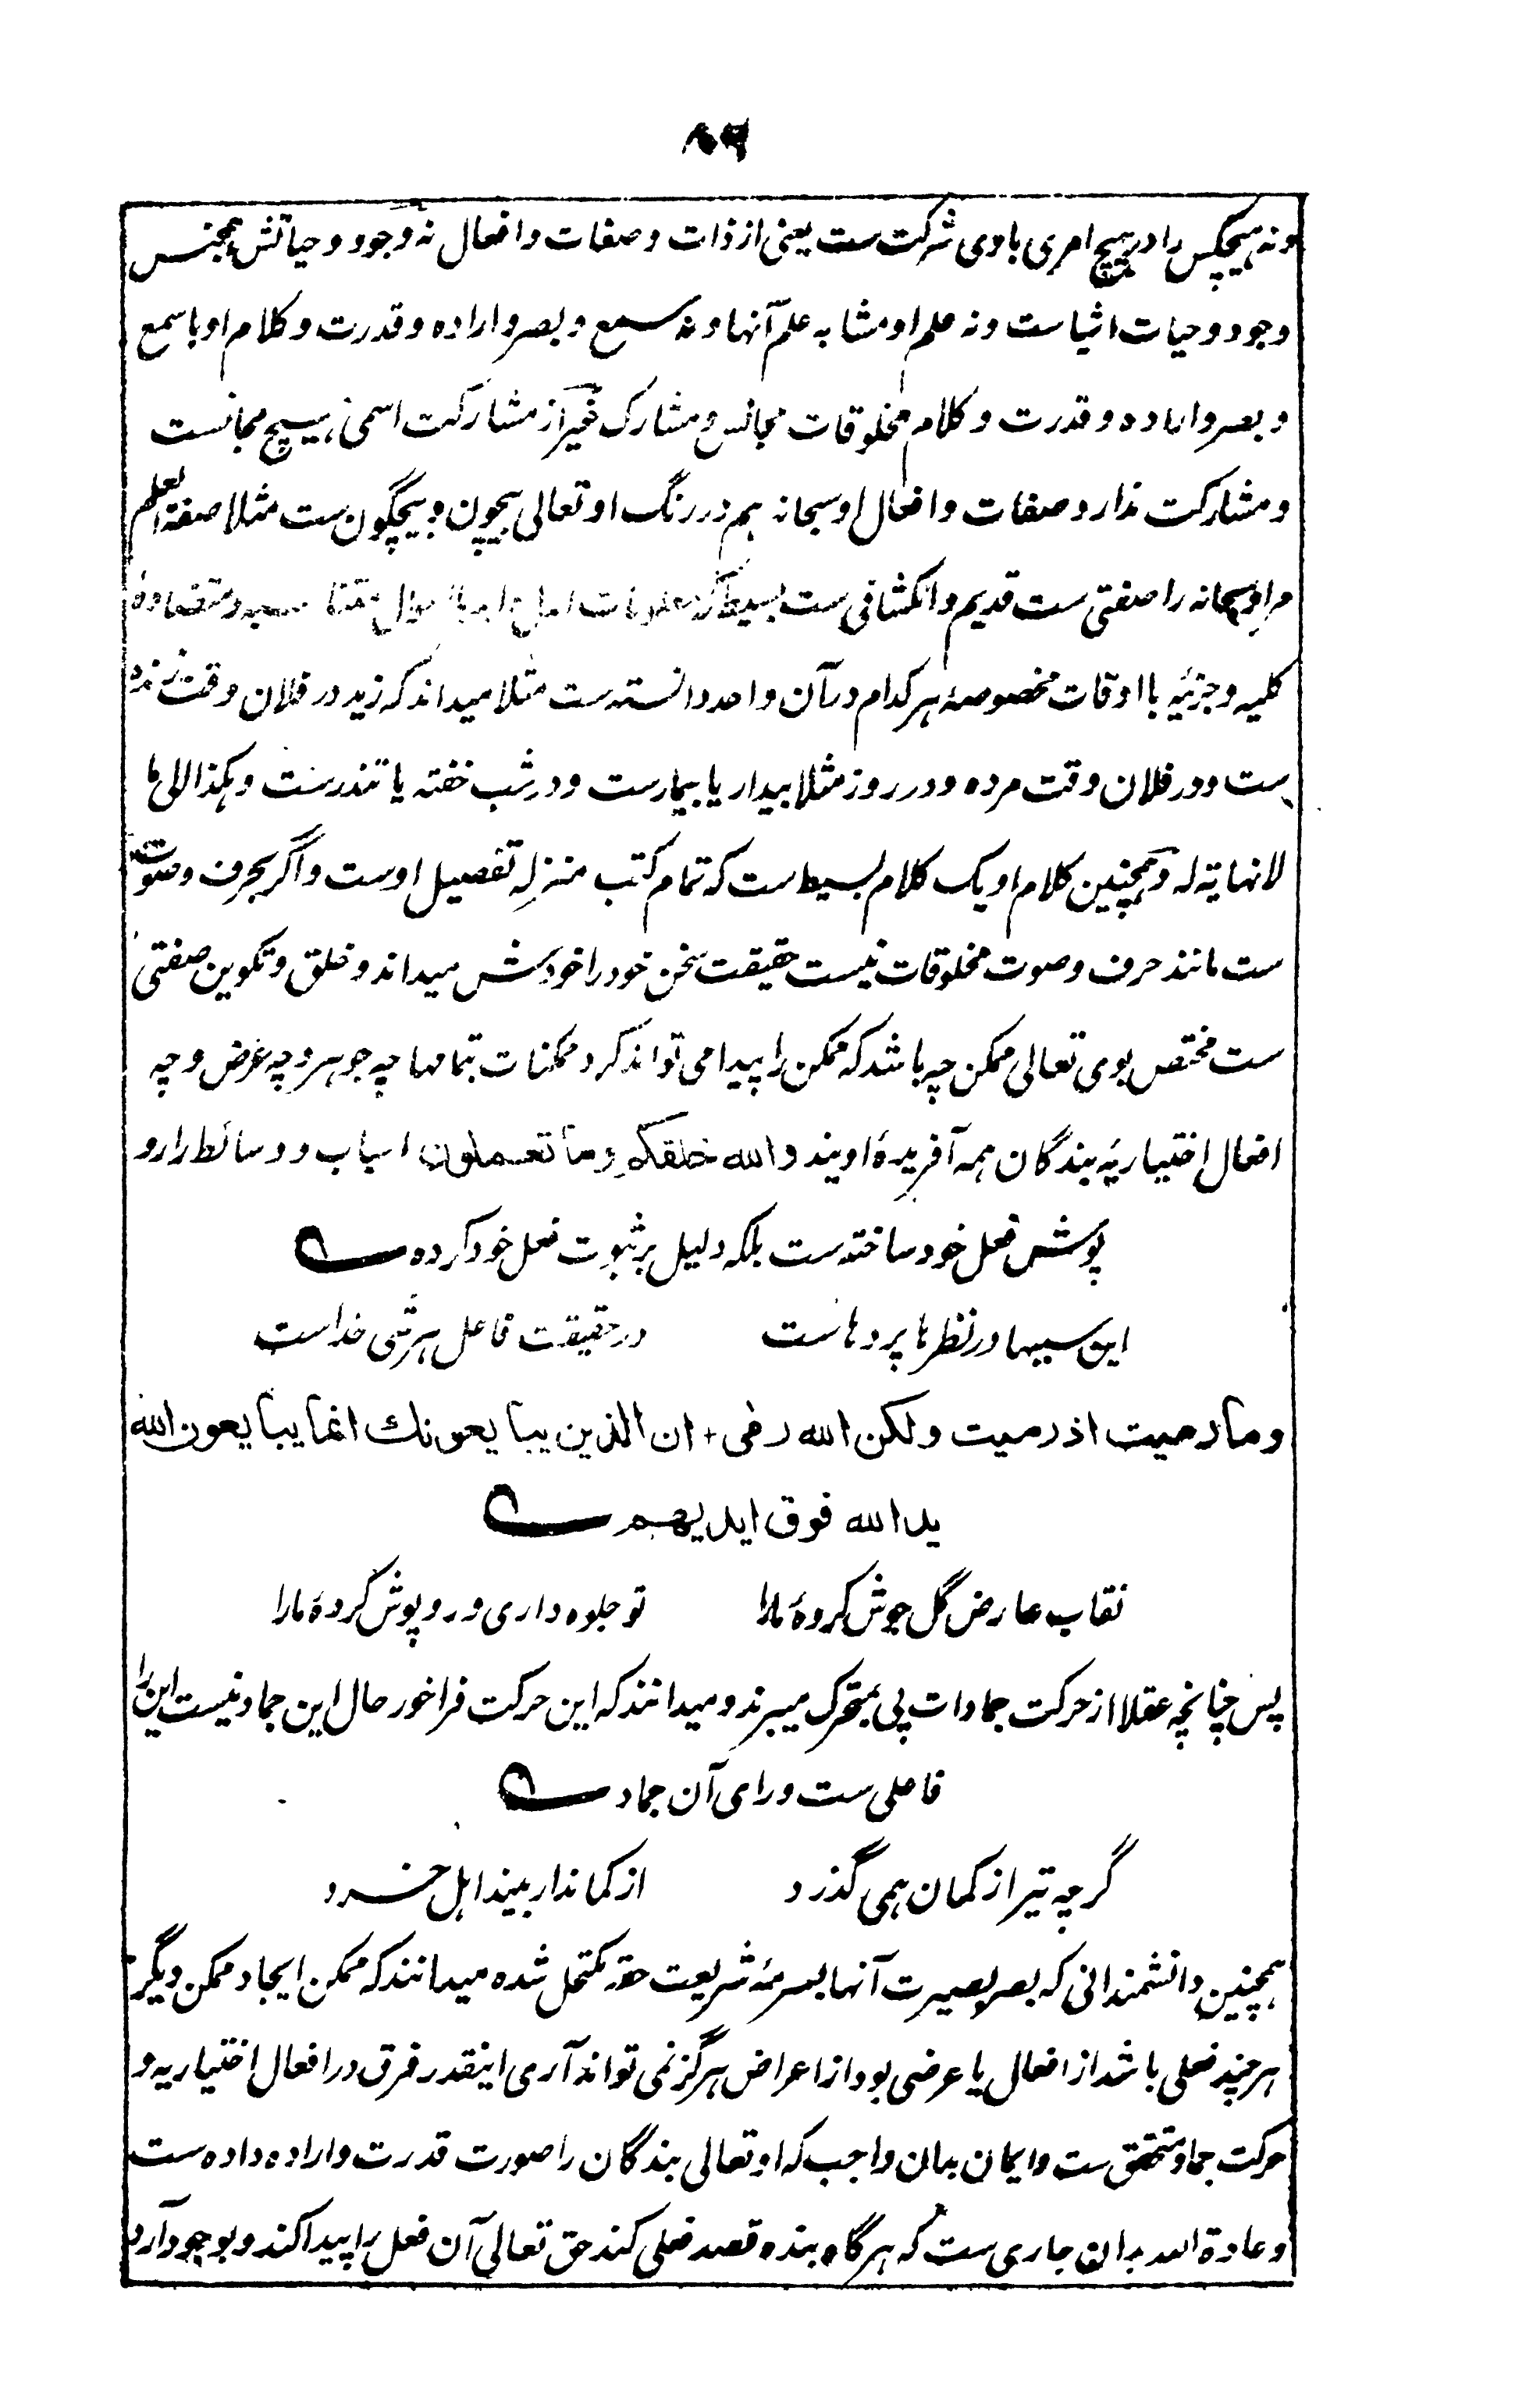 ونه هیچکس را در هیچ امری با وی شرکت ست یعنی از ذات و صفات و افعال نه وجود و حیاتش همجنس
وجود و حیات اشیاست و نه علم او مشابه علم آنها و نه سمع و بصر و اراده و قدرت و کلام او با سمع
و بصر و اراده و قدرت و کلام مخلوقات مجانس و مشارک غیر از مشارکت اسمی هیچ مجانست
و مشارکت ندارد صفات و افعال او سبحانه هم در رنگ او تعالی بیچون و بیچگون ست مثلا صفة العلم
مر او سبحانه را صفتی ست قدیم و انکشافی ست بسیط که معلومات ازل و ابد با احوال متناسبه و متضاده
کلیه و جزئیه با اوقات مخصوصهٔ هر کدام در آن واحد دانسته ست مثلا میداند که زید در فلان وقت زنده
ست و در فلان وقت مرده و در روز مثلا بیدار یا بیمارست و در شب خفته یا تندرست و هکذا الی ما
لا نهایته له و همچنین کلام او یک کلام بسیط ست که تمام کتب منزله تفصیل اوست و اگر بحرف و صوت
ست مانند حرف و صوت مخلوقات نیست حقیقت سخن خود را خودش میداند و خلق و تکوین صفتی
ست مختص بوی تعالی ممکن چه باشد که ممکن را پیدا می تواند کرد ممکنات بتمامها چه جوهر و چه عرض و چه
افعال اختیاریه بندگان همه آفریدهٔ اویند والله خلقکم وما تعملون اسباب و وسائط را رو
پوش فعل خود ساخته ست بلکه دلیل بر ثبوت فعل خود کرده
این سببها در نظرها پردهاست در حقیقت فاعل هر شی خداست
وما رمیت اذ رمیت ولکن الله رمی + ان الذین یبایعونك انما یبایعون الله
ید الله فوق ایدیهم
نقاب عارض گل جوش کردهٔ ما را تو جلوه داری و روپوش کردهٔ ما را
پس چنانچه عقلا از حرکت جمادات پی بمتحرک میبرند و میدانند که این حرکت فراخور حال این جماد نیست این را
فاعلی ست ورای آن جماد
گرچه تیر از کمان همی گذرد از کماندار بیند اهل خرد
همچنین دانشمندانی که بصر بصیرت آنها بسرمهٔ شریعت حقه مکتحل شده میدانند که ممکن ایجاد ممکن دیگر
هرچند فعلی باشد از افعال یا عرضی بود از اعراض هرگز نمی تواند آری اینقدر فرق در افعال اختیاریه و
حرکت جماد متحقق ست و ایمان بدان واجب که او تعالی بندگان را صورت قدرت و اراده داده ست
و عادة الله بدان جاری ست که هرگاه بنده قصد فعلی کند حق تعالی آن فعل را پیدا کند و بوجود آرد